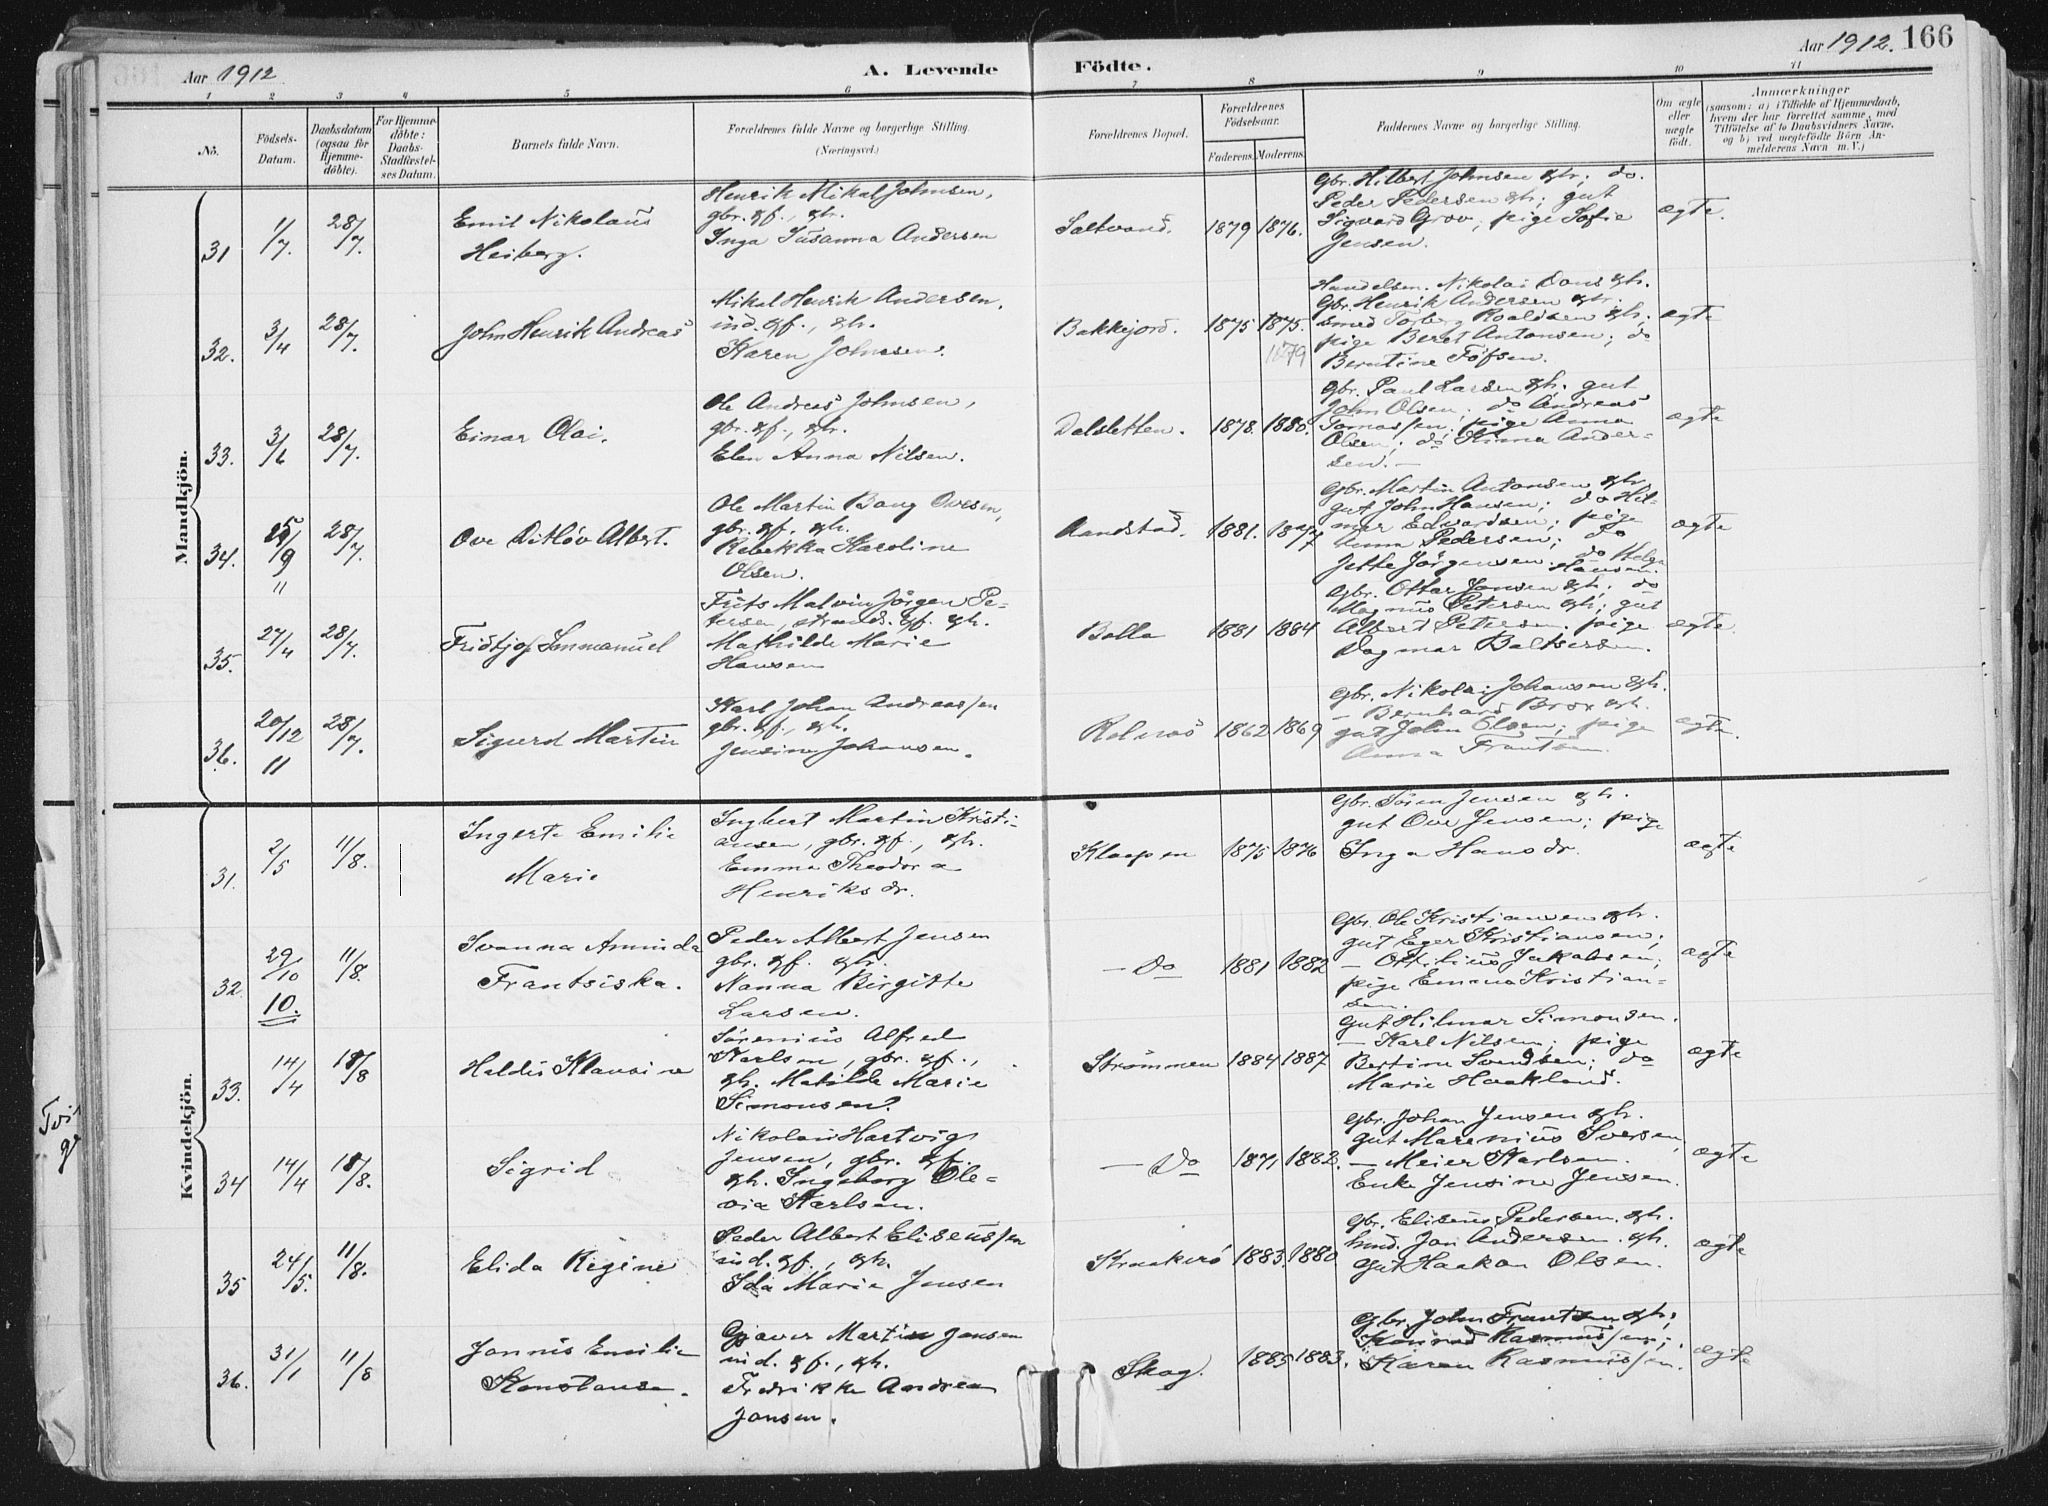 Aar 1912
A. Levende Födte.
Aar 1912. 166
1 2 3 4 5 6 7 8 9 10 11
No.
Födsels-Datum.
Daabsdatum (ogsaa for Hjemme-döbte).
For Hjemme-döbte: Daabs-Stadfæstel-ses Datum.
Barnets fulde Navn.
Forældrenes fulde Navne og borgerlige Stilling.
(Næringsvei.)
Forældrenes Bopæl.
Forældrenes Födselsaar.
Faderens. Moderens.
Faddernes Navne og borgerlige Stilling.
Om ægte eller uægte födt.
Anmærkninger
(saasom: a) i Tilfælde af Hjemmedaab,
hvem der har forrettet samme, med
Tilföielse af to Daabsvidners Navne,
og b) ved uægtefödte Börn An-
melderens Navn m. V.)
Mandkjön.
31 1/7. 28/7.
Emil Nikolaus
Heiberg.
Henrik Mikal Johnsen,
gbr. gf., gh.
Inga Susanna Andersen
Saltvand. 1879 1876.
gbr. Hilbert Johnsen gh; do.
Peder Pedersen gh; gut
Sigvard Grov; pige Sofie
Jensen.
ægte.
32. 3/4 28/7.
John Henrik Andreas
Mikal Henrik Andersen,
ind. gf., gh.
Karen Johnsen.
Bakkejord. 1875 1875.
1879
Handelsm. Nikolai Dons gh.
Gbr. Henrik Andersen gh.
smed Torberg Roaldsen gh;
pige Beret Antonsen; do
Berntine Tofsen.
ægte
33. 3/6 28/7.
Einar Olai.
Ole Andreas Johnsen,
gbr. gf., gh.
Elen Anna Nilsen.
Dalsletten. 1878. 1880.
gbr. Paul Larsen gh. gut
John Olsen; do Andreas
Tomassen; pige Anna
Olsen; do Anna Ander-
sen.
ægte
34. 25/9 11 28/7.
Ove Ditlöv Albert.
Ole Martin Bang Ovesen,
gbr. gf. gh.
Rebekka Karoline
Olsen.
Aandstad. 1881. 1877
gbr. Martin Antonsen gh
gut John Hansen; do Hil-
mar Edvardsen; pige
Anna Pedersen; do
Jette Jörgensen. do Helga
Hansen.
ægte
35. 27/4 28/7.
Fridtjof Immanuel
Frits Malvin Jörgen Pe-
tersen, strands. gf. gh.
Mathilde Marie
Hansen
Balla 1881 1884
gbr. Ottar Jensen gh; do
Magnus Petersen gh; gut
Albert Petersen. pige
Dagmar Baltsersen.
ægte.
36. 20/12 11 28/7.
Sigurd Martin
Karl Johan Andreassen
gbr. gf., gh.
Jensine Johansen.
Kolnes 1862 1869
gbr. Nikolai Johansen gh.
— Bernhard Brox gh.
gut John Olsen; pige
Anna Frantsen.
ægte.
Kvindekjön.
31. 2/5 11/8.
Ingerte Emilie
Marie
Ingbert Martin Kristi-
ansen, gbr. gf., gh.
Emma Theodora
Henriksdr.
Klaapen 1875 1876
gbr. Sören Jensen gh.
gut Ove Jensen; pige
Inga Hansdr.
ægte
32 29/10 10. 11/8.
Ivanna Aminda
Frantsiska.
Peder Albert Jensen
gbr. gf. gh.
Nanna Birgitte
Larsen.
— Do 1881 1882
gbr. Ole Kristiansen gh.
gut Eger Kristiansen;
— Ottilius Jakobsen;
pige Emma Kristian-
sen.
ægte
33. 14/4 18/8
Haldis Klausine
Sörenius Alfred
Karlsen, gbr. gf.,
gh. Matilde Marie
Simonsen.
Strömmen 1884 1887
gut Hilmar Simonsen.
— Karl Nilsen; pige
Bertine Svendsen; do
Marie Haakland.
ægte
34 14/4 18/8.
Sigrid
Nikolai Hartvig
Jensen, gbr. gf.
gh. Ingeborg Ole-
via Karlsen.
— Do 1871 1882.
gbr. Johan Jensen gh.
gut Marenius Iversen,
— Meier Karlsen.
Enke Jensine Jensen.
ægte
35 24/5. 11/8.
Elida Regine
Peder Albert Eliseussen
ind. gf., gh.
Ida Marie Jensen
Straakerö 1883. 1880
gbr. Eliseus Pedersen. gh.
hmd. Jan Andersen. gh.
gut Haakon Olsen.
ægte
36. 31/1 11/8
Jannis Emilie
Konstanse.
Gjæver Martin Jansen
ind. gf., gh.
Fredrikke Andrea
Jansen.
Skog. 1885 1883.
gbr. John Frantsen gh;
Konrad Rasmussen;
Karen Rasmussen.
ægte